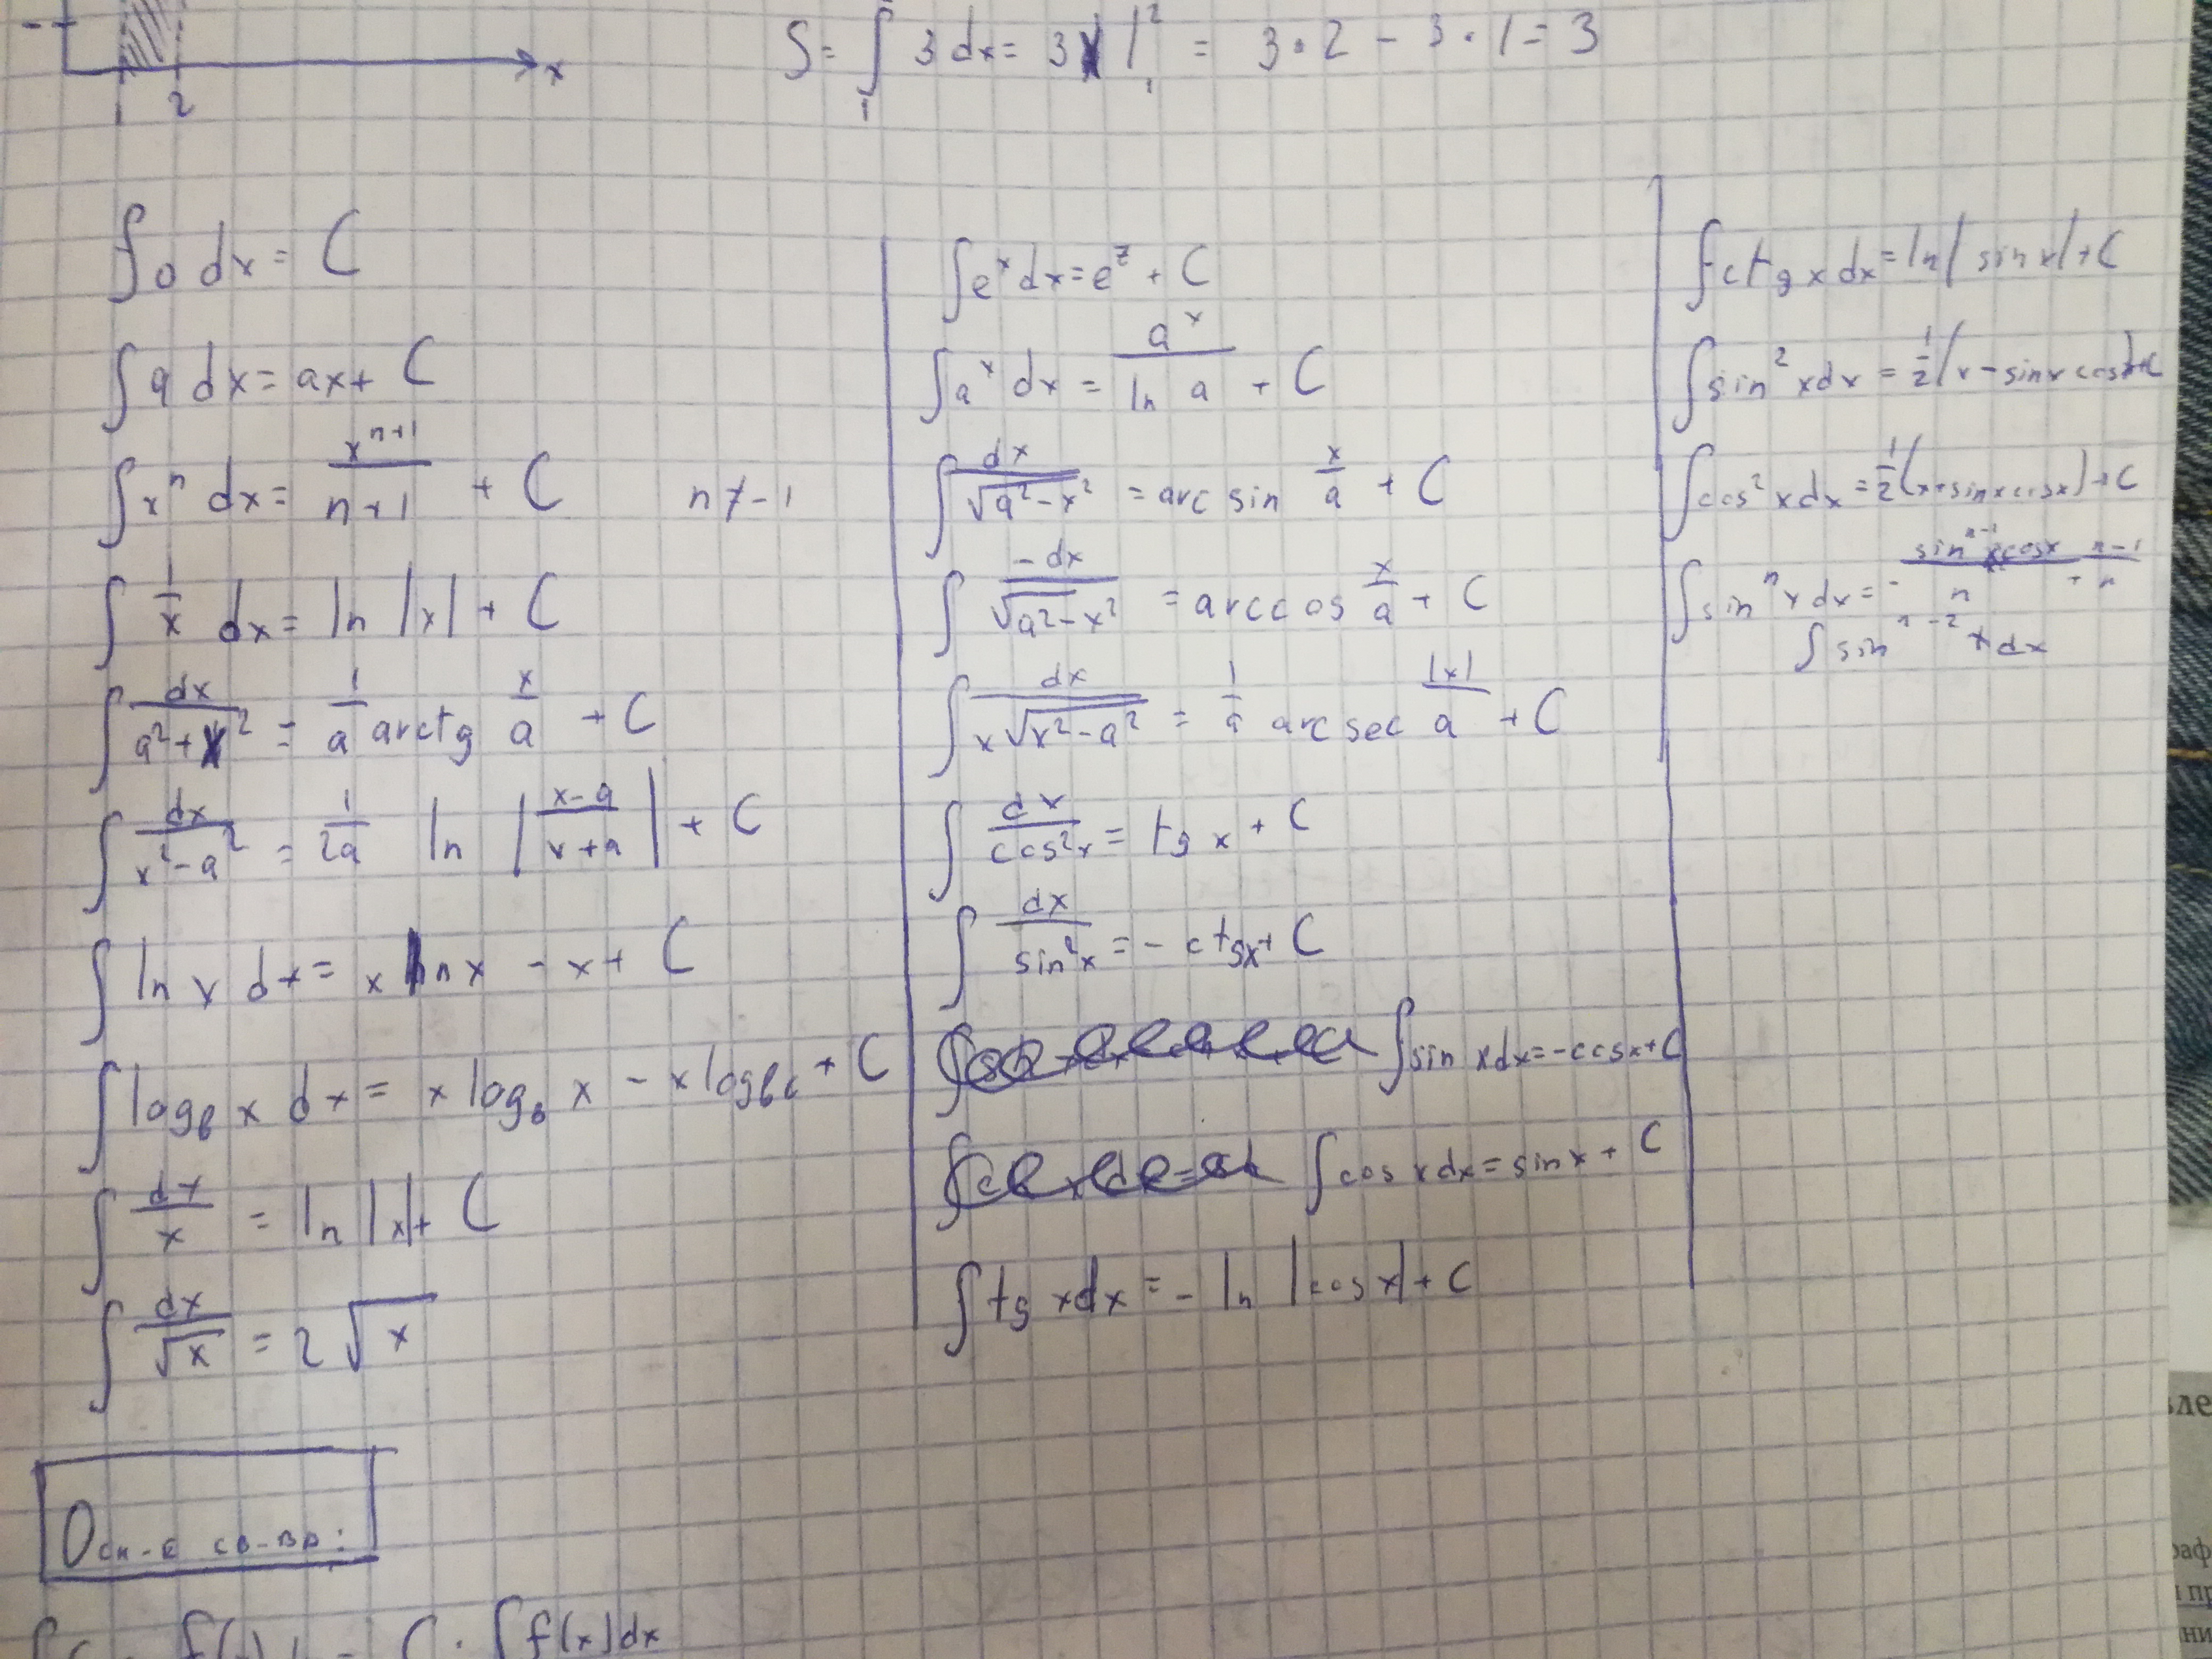 1 2 x
S = ∫₁ 3 dx = 3x |₁² = 3 · 2 - 3 · 1 = 3
∫ 0 dx = C
∫ a dx = ax + C
∫ xⁿ dx = xⁿ⁺¹/(n+1) + C n ≠ -1
∫ 1/x dx = ln |x| + C
∫ dx/(a² + x²) = 1/a arctg x/a + C
∫ dx/(x² - a²) = 1/(2a) ln |(x-a)/(x+a)| + C
∫ ln x dx = x ln x - x + C
∫ log_b x dx = x log_b x - x log_b e + C
∫ dx/x = ln |x| + C
∫ dx/√x = 2 √x
∫ eˣ dx = e^z + C
∫ aˣ dx = aˣ/(ln a) + C
∫ dx/√(a² - x²) = arc sin x/a + C
∫ -dx/√(a² - x²) = arccos x/a + C
∫ dx/(x√(x² - a²)) = 1/a arc sec |x|/a + C
∫ dx/cos²x = tg x + C
∫ dx/sin²x = - ctgx + C
∫ sin x dx = -cosx + C
∫ cos x dx = sinx + C
∫ tg x dx = - ln |cos x| + C
∫ ctg x dx = ln | sin x| + C
∫ sin² x dx = 1/2 (x - sinx cosx) + C
∫ cos² x dx = 1/2 (x + sinx cosx) + C
∫ sinⁿ x dx = - (sinⁿ⁻¹ x cosx)/n + (n-1)/n
∫ sinⁿ⁻² x dx
Осн-е св-ва:
C · ∫ f(x) dx